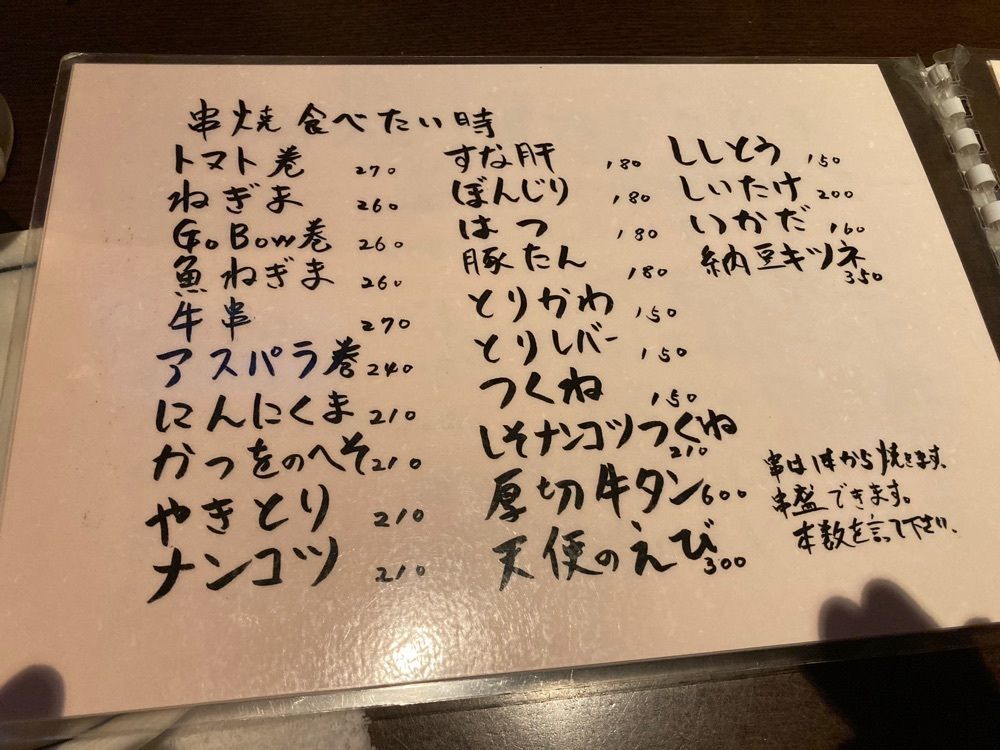 串焼 食べたい時
トマト巻 270
ねぎま 260
Go Bow巻 260
魚ねぎま 260
牛串 270
アスパラ巻 240
にんにくま 210
かつをのへそ 210
やきとり 210
ナンコツ 210
すな肝 180
ぼんじり 180
はつ 180
豚たん 180
とりかわ 150
とりレバー 150
つくね 150
しそナンコツつくね 210
厚切牛タン 600
天使のえび 300
ししとう 150
しいたけ 200
いかだ 160
納豆キツネ 350
串は1本から焼きます。
串盛できます。
本数を言って下さい。